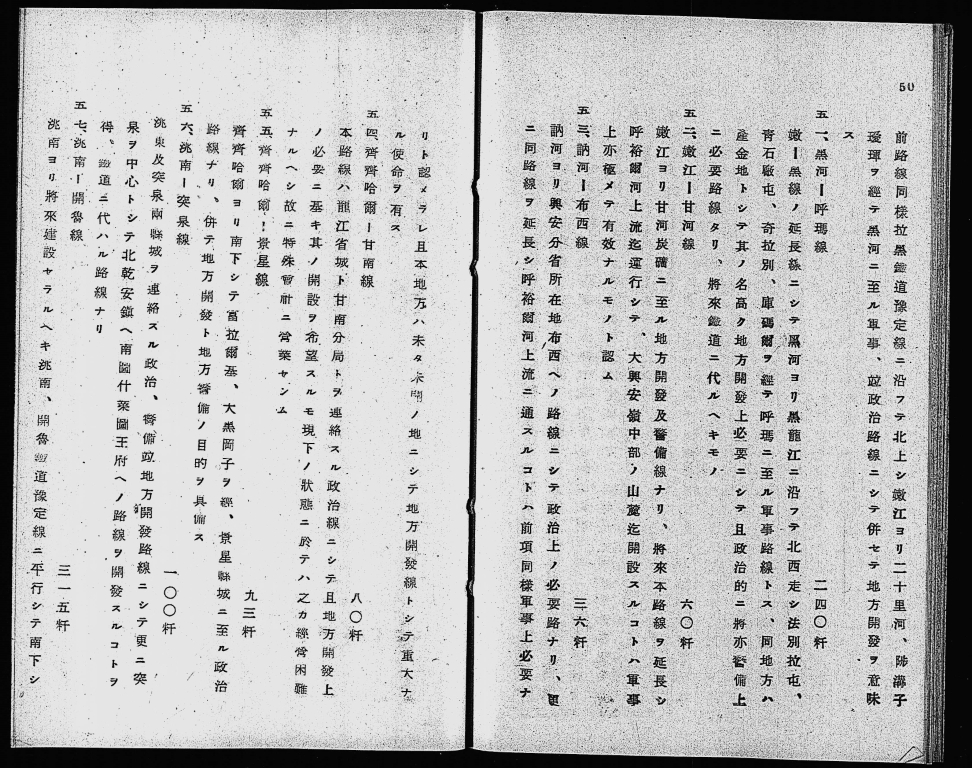 50
前路線同樣拉黑鐵道豫定線ニ沿フテ北上シ嫩江ヨリ二十里河、陟溝子
璦琿ヲ經テ黑河ニ至ル軍事、竝政治路線ニシテ併セテ地方開發ヲ意味
ス
五一、黑河ー呼瑪線 二四〇粁
嫩ー黑線ノ延長線ニシテ黑河ヨリ黑龍江ニ沿フテ北西走シ法別拉屯、
靑石廠屯、奇拉別、庫碼爾ヲ經テ呼瑪ニ至ル軍事路線トス、同地方ハ
產金地トシテ其ノ名高ク地方開發上必要ニシテ且政治的ニ將亦警備上
ニ必要路線タリ、將來鐵道ニ代ルヘキモノ
五二、嫩江ー甘河線 六〇粁
嫩江ヨリ甘河炭礦ニ至ル地方開發及警備線ナリ、將來本路線ヲ延長シ
呼裕爾河上流迄運行シテ、大興安嶺中部ノ山麓迄開設スルコトハ軍事
上亦極メテ有效ナルモノト認ム
五三、訥河ー布西線 三六粁
訥河ヨリ興安分省所在地布西ヘノ路線ニシテ政治上ノ必要路ナリ、更
ニ同路線ヲ延長シ呼裕爾河上流ニ通スルコトハ前項同樣軍事上必要ナ
リト認メラレ且本地方ハ未タ未開ノ地ニシテ地方開發線トシテ重大ナ
ル使命ヲ有ス
五四、齊齊哈爾ー甘南線 八〇粁
本路線ハ龍江省城ト甘南分局トヲ連絡スル政治線ニシテ且地方開發上
ノ必要ニ基キ其ノ開設ヲ希望スルモ現下ノ狀態ニ於テハ之カ經營困難
ナルヘシ故ニ特殊會社ニ營業セシム
五五、齊齊哈爾ー景星線 九三粁
齊齊哈爾ヨリ南下シテ富拉爾基、大黑岡子ヲ經、景星縣城ニ至ル政治
路線ナリ、併テ地方開發ト地方警備ノ目的ヲ具備ス
五六、洮南ー突泉線 一〇〇粁
洮東及突泉兩縣城ヲ連絡スル政治、警備竝地方開發路線ニシテ更ニ突
泉ヲ中心トシテ北乾安鎭ヘ南圖什業圖王府ヘノ路線ヲ開發スルコトヲ
得。鐵道ニ代ハル路線ナリ
五七、洮南ー開魯線 三一五粁
洮南ヨリ將來建設セラルヘキ洮南、開魯鐵道豫定線ニ平行シテ南下シ